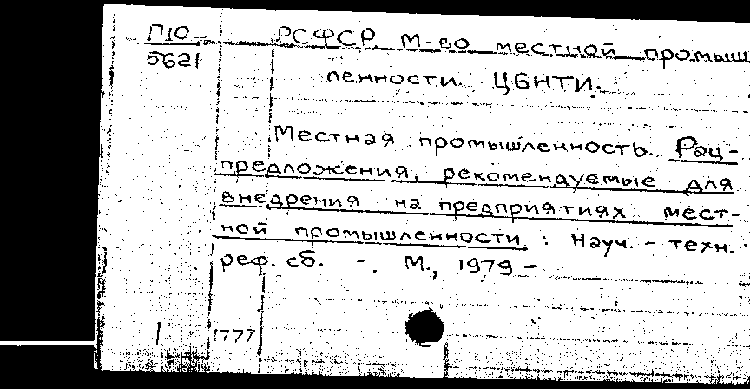 П10 РСФСР. М-во местной промыш
5621 ленности. ЦБНТИ.
Местная промышленность. Рац-
предложения, рекомендуемые для
внедрения на предприятиях мест-
ной промышленности : Науч. - техн.
реф. сб. - М., 1979 -
1777